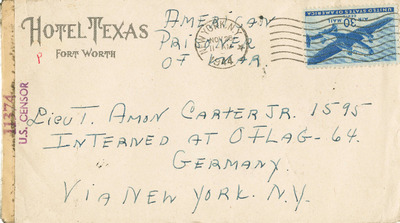 HOTEL TEXAS
FORT WORTH
P
AMERICAN
PRISONER
OF WAR
NEW YORK, N.Y.
1944
30¢
AIR MAIL
UNITED STATES OF AMERICA
11374
U.S. CENSOR
LIEUT. AMON CARTER JR. 1595
INTERNED AT OFLAG-64.
GERMANY.
VIA NEW YORK. N.Y.